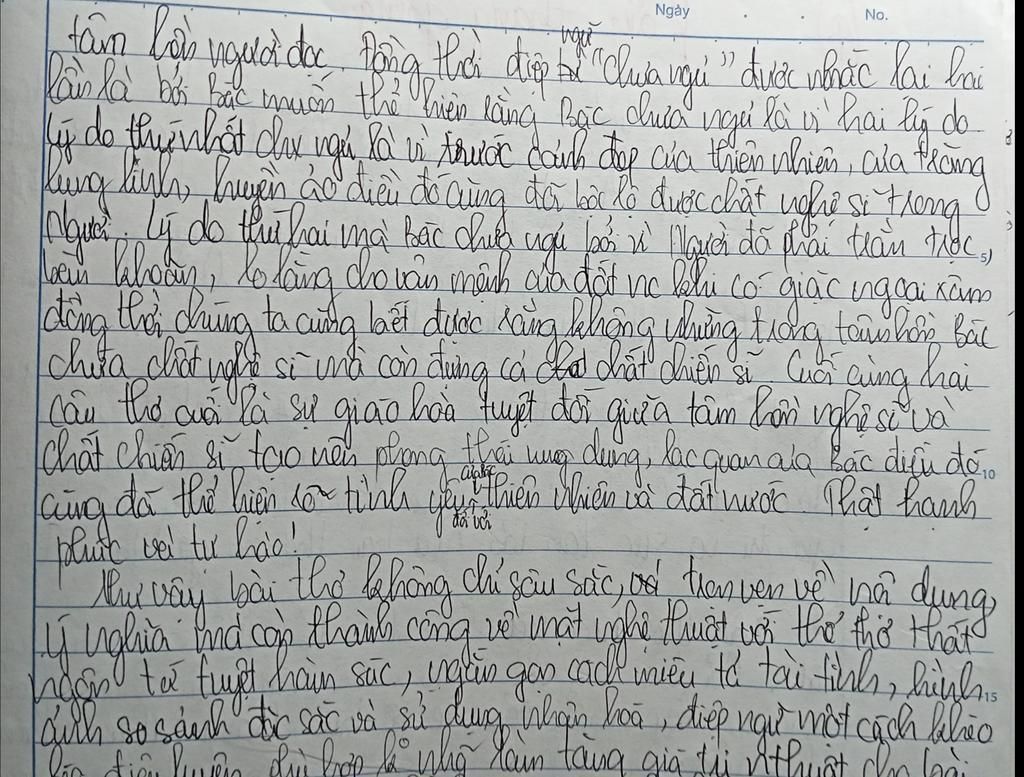 Ngày . . No.
tâm hồn người đọc. Đồng thời điệp ngữ "chưa ngủ" được nhắc lại hai
lần là bởi Bác muốn thể hiện rằng Bác chưa ngủ là vì hai lý do
Lý do thứ nhất chưa ngủ là vì trước cảnh đẹp của thiên nhiên, của trăng
lung linh, huyền ảo điều đó cũng đã bộc lộ được chất nghệ sĩ trong
Người. Lý do thứ hai mà Bác chưa ngủ bởi vì Người đã phải trằn trọc,
băn khoăn, lo lắng cho vận mệnh của đất nc khi có giặc ngoại xâm
đồng thời chúng ta cũng biết được rằng không những trong tâm hồn Bác
chứa chất nghệ sĩ mà còn đựng cả chất chiến sĩ. Cuối cùng hai
câu thơ cuối là sự giao hoà tuyệt đối giữa tâm hồn nghệ sĩ và
chất chiến sĩ tạo nên phong thái ung dung, lạc quan của Bác điều đó
cũng đã thể hiện rõ tình yêu của Bác đối với thiên nhiên và đất nước. Thật hạnh
phúc và tự hào!
Như vậy bài thơ không chỉ sâu sắc, trọn vẹn về nội dung,
ý nghĩa mà còn thành công về mặt nghệ thuật với thể thơ thất
ngôn tứ tuyệt hàm súc, ngắn gọn cách miêu tả tài tình, hình
ảnh so sánh đặc sắc và sử dụng nhân hoá, điệp ngữ một cách khéo
léo, điêu luyện, phù hợp là làm tăng giá trị cho bài
5
10
15